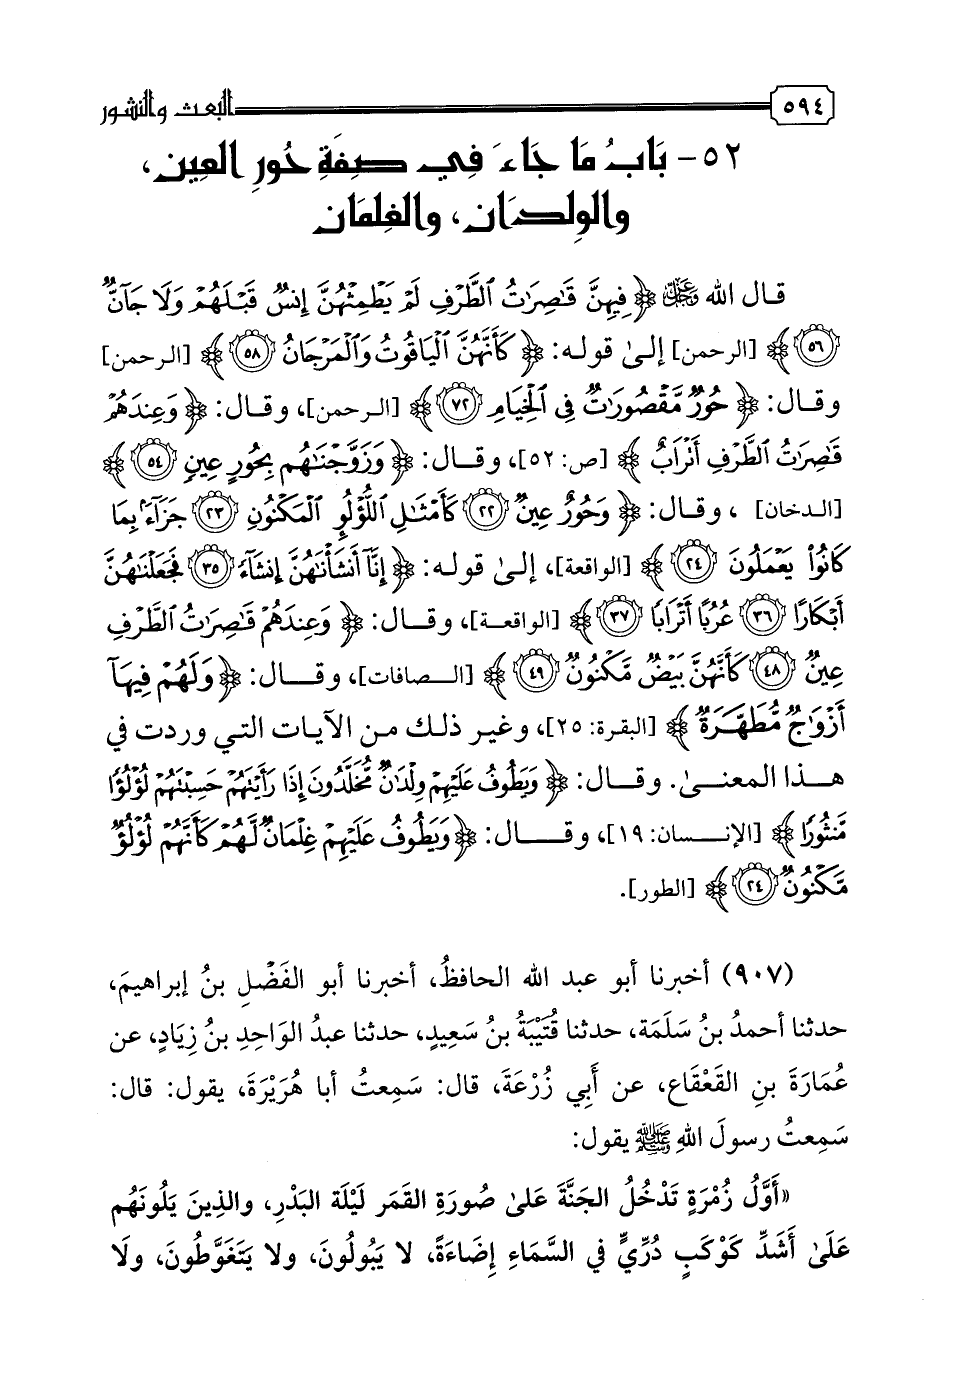 ٥٩٤ البعث والنشور
٥٢- بَابُ مَا جَاءَ فِي صِفَةِ حُورِ العِينِ،
والوِلدَان، والغِلمَان
قال الله ﷿ ﴿فِيهِنَّ قَٰصِرَٰتُ ٱلطَّرْفِ لَمْ يَطْمِثْهُنَّ إِنسٌ قَبْلَهُمْ وَلَا جَآنٌّ
٥٦﴾ [الرحمن] إلىٰ قوله: ﴿كَأَنَّهُنَّ ٱلْيَاقُوتُ وَٱلْمَرْجَانُ ٥٨﴾ [الرحمن]
وقال: ﴿حُورٌ مَّقْصُورَٰتٌ فِي ٱلْخِيَامِ ٧٢﴾ [الرحمن]، وقال: ﴿وَعِندَهُمْ
قَٰصِرَٰتُ ٱلطَّرْفِ أَتْرَابٌ﴾ [ص: ٥٢]، وقال: ﴿وَزَوَّجْنَٰهُم بِحُورٍ عِينٍ ٥٤﴾
[الدخان] ، وقال: ﴿وَحُورٌ عِينٌ ٢٢ كَأَمْثَٰلِ ٱللُّؤْلُؤِ ٱلْمَكْنُونِ ٢٣ جَزَآءً بِمَا
كَانُوا۟ يَعْمَلُونَ ٢٤﴾ [الواقعة]، إلىٰ قوله: ﴿إِنَّآ أَنشَأْنَٰهُنَّ إِنشَآءً ٣٥ فَجَعَلْنَٰهُنَّ
أَبْكَارًا ٣٦ عُرُبًا أَتْرَابًا ٣٧﴾ [الواقعة]، وقال: ﴿وَعِندَهُمْ قَٰصِرَٰتُ ٱلطَّرْفِ
عِينٌ ٤٨ كَأَنَّهُنَّ بَيْضٌ مَّكْنُونٌ ٤٩﴾ [الصافات]، وقال: ﴿وَلَهُمْ فِيهَآ
أَزْوَٰجٌ مُّطَهَّرَةٌ﴾ [البقرة: ٢٥]، وغير ذلك من الآيات التي وردت في
هذا المعنىٰ. وقال: ﴿وَيَطُوفُ عَلَيْهِمْ وِلْدَٰنٌ مُّخَلَّدُونَ إِذَا رَأَيْتَهُمْ حَسِبْتَهُمْ لُؤْلُؤًا
مَّنثُورًا﴾ [الإنسان: ١٩]، وقال: ﴿وَيَطُوفُ عَلَيْهِمْ غِلْمَانٌ لَّهُمْ كَأَنَّهُمْ لُؤْلُؤٌ
مَّكْنُونٌ ٢٤﴾ [الطور].
(٩٠٧) أخبرنا أبو عبد الله الحافظُ، أخبرنا أبو الفَضْلِ بنُ إبراهيمَ،
حدثنا أحمدُ بنُ سَلَمَة، حدثنا قُتَيْبَةُ بنُ سَعِيدٍ، حدثنا عبدُ الوَاحِدِ بنُ زِيَادٍ، عن
عُمَارَةَ بنِ القَعْقَاعِ، عن أَبِي زُرْعَةَ، قال: سَمِعتُ أبا هُرَيْرَةَ، يقول: قال:
سَمِعتُ رسولَ اللهِ ﷺ يقول:
«أَوَّلُ زُمْرَةٍ تَدْخُلُ الجَنَّةَ عَلىٰ صُورَةِ القَمَرِ لَيْلَةَ البَدْرِ، والذِينَ يَلُونَهُم
عَلَىٰ أَشَدِّ كَوْكَبٍ دُرِّيٍّ فِي السَّمَاءِ إِضَاءَةً، لا يَبُولُونَ، ولا يَتَغَوَّطُونَ، ولَا